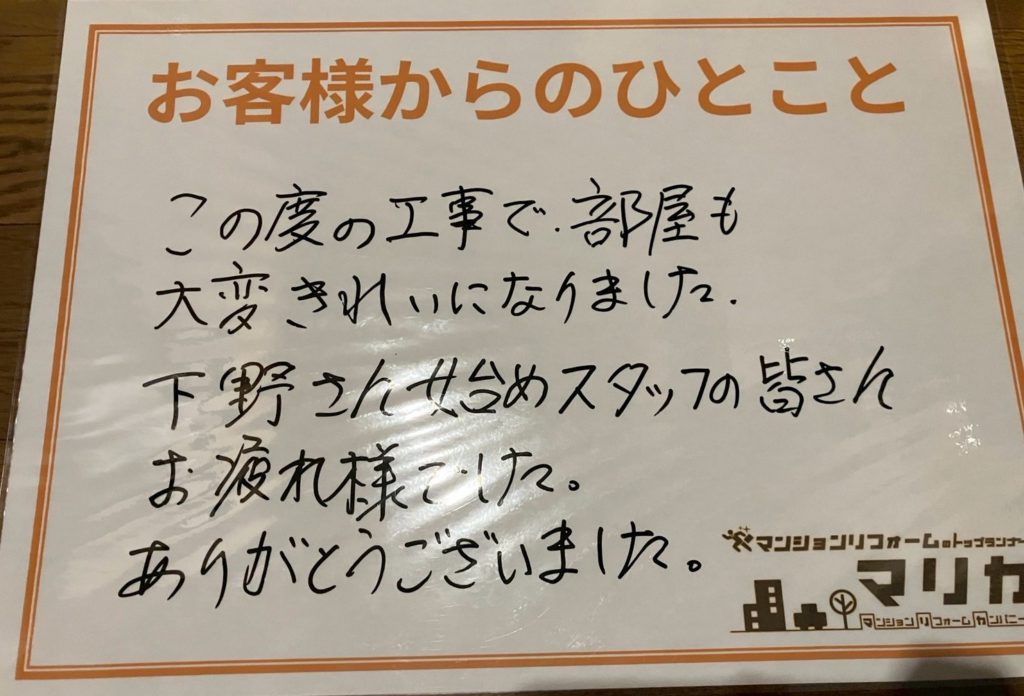 お客様からのひとこと
この度の工事で.部屋も
大変きれいになりました.
下野さん始めスタッフの皆さん
お疲れ様でした。
ありがとうございました。
マンションリフォームのトップランナー
マリカ
マンションリフォームカンパニー